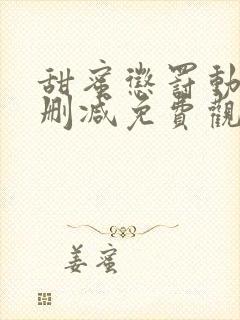 甜蜜懲罰動
刪減免費觀
姜蜜